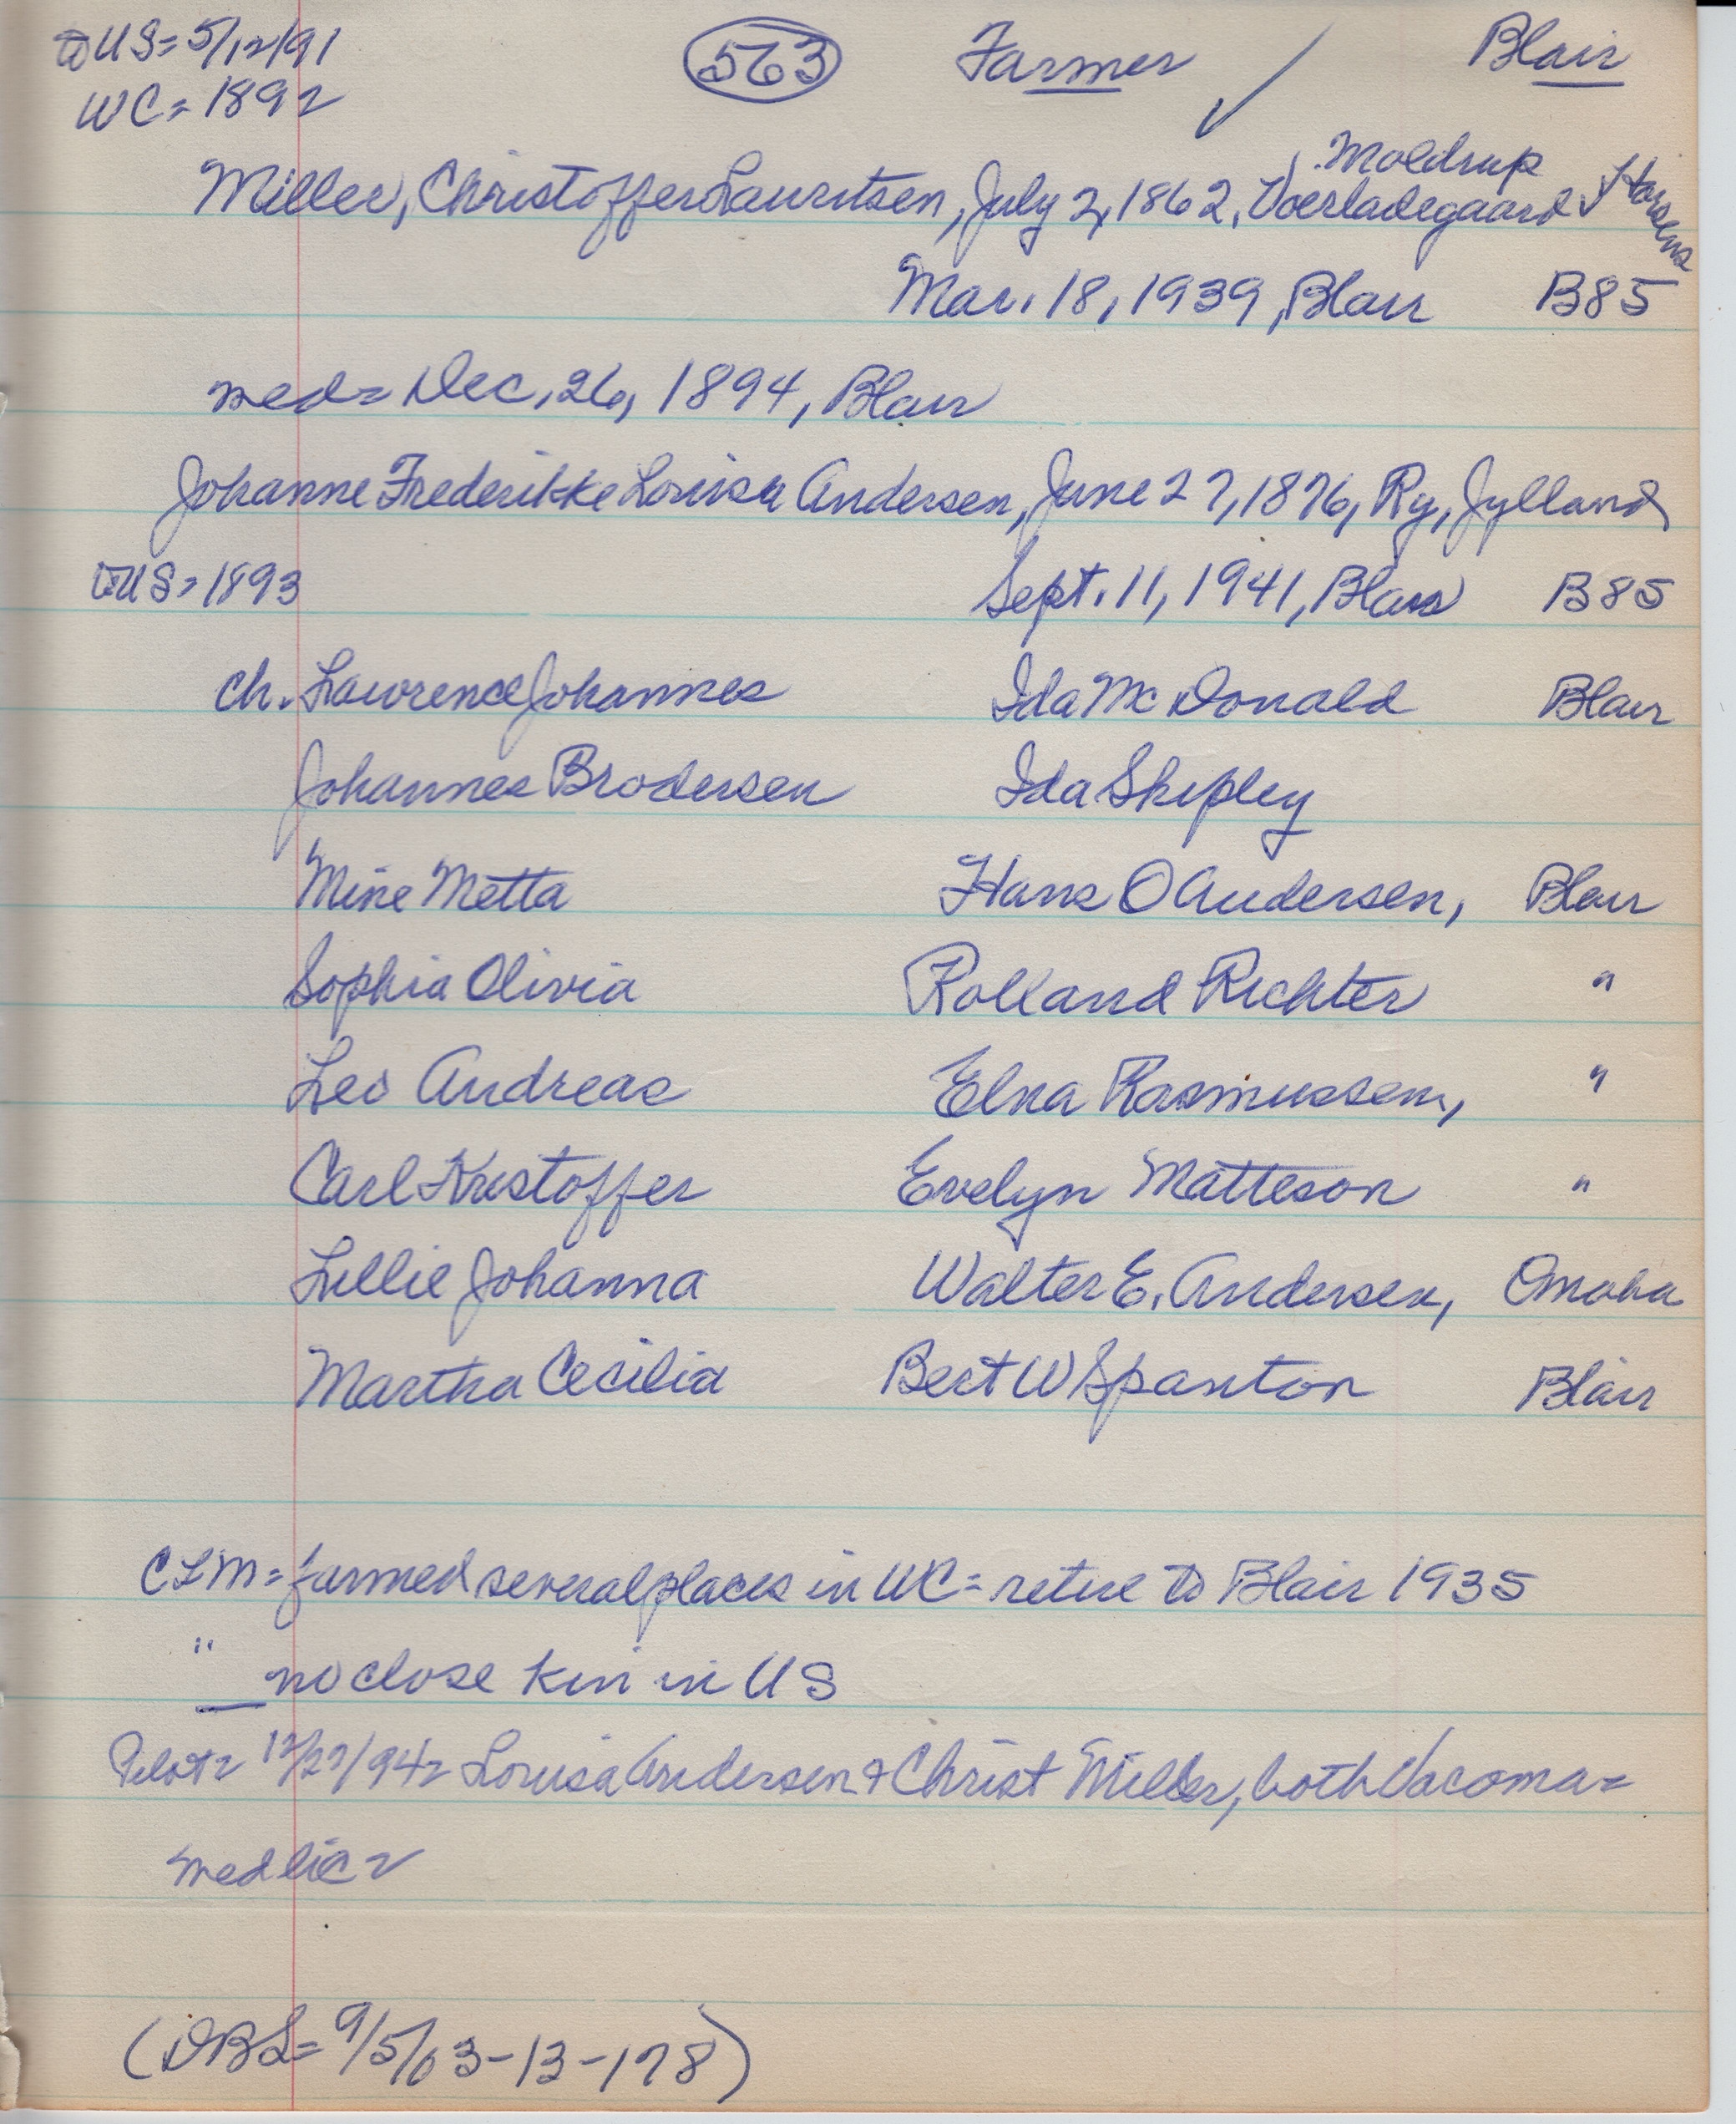 to US = 5/12/91 563 Farmer Blair
WC = 1892
Moldrup
Miller, Christoffer Lauritsen, July 2, 1862, Voerladegaard Horsens
Mar. 18, 1939, Blair B85
med = Dec. 26, 1894, Blair
Johanne Frederikke Louisa Andersen, June 27, 1876, Ry, Jylland
to US = 1893 Sept. 11, 1941, Blair B85
ch. Lawrence Johannes Ida McDonald Blair
Johannes Brodersen Ida Shipley
Mine Metta Hans O Andersen, Blair
Sophia Olivia Rolland Richter "
Leo Andreas Elna Rasmussen, "
Carl Kristoffer Evelyn Matteson "
Lillie Johanna Walter E. Andersen, Omaha
Martha Cecilia Bert W Spanton Blair
CLM = farmed several places in WC = retire to Blair 1935
" no close kin in US
Pilot = 12/27/94 = Louisa Andersen + Christ Miller, both Vacoma =
med lic =
(DBL = 9/5/63-13-178)